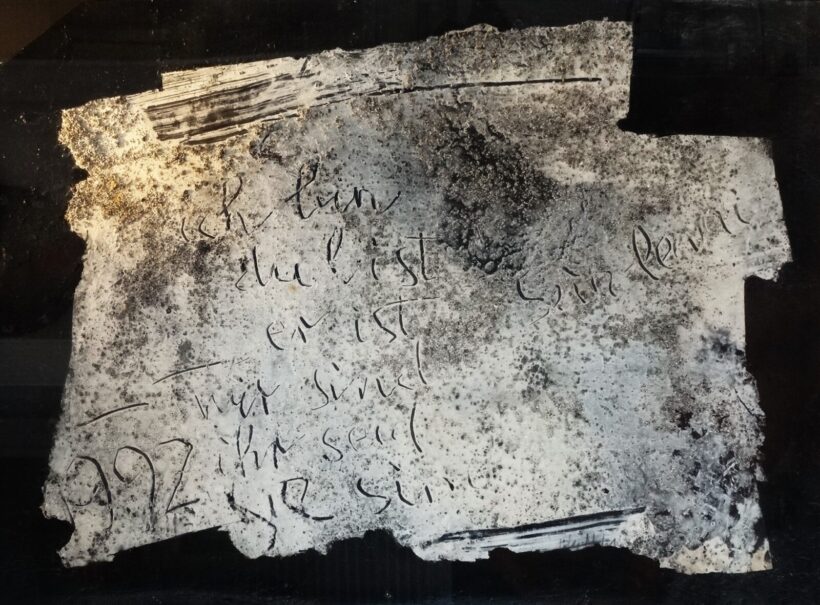 ich bin
du bist
er ist
wir sind
ihr seid
sie sind
sein
1992